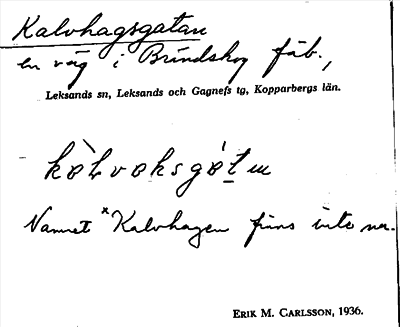 Kalvhagsgatan
en väg i Brindskog fäb.,
Leksands sn, Leksands och Gagnefs tg, Kopparbergs län.
Namnet *Kalvhagen finns inte nu.
ERIK M. CARLSSON, 1936.